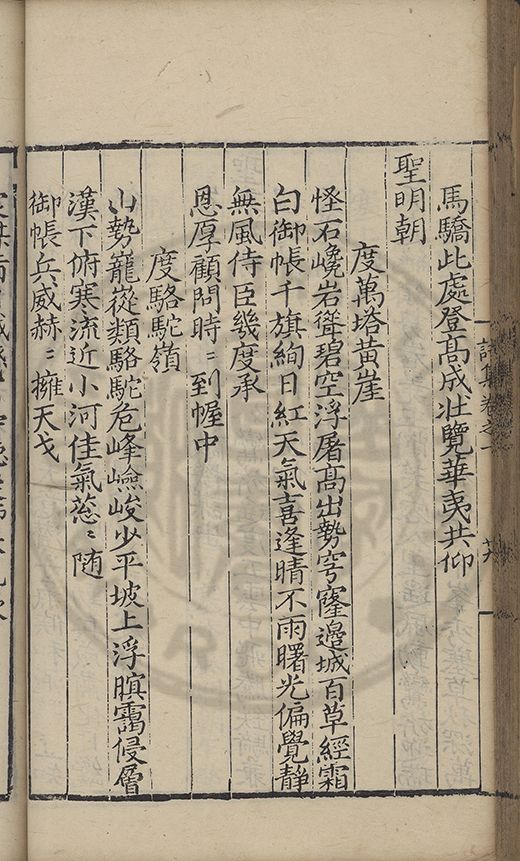 詩集卷之一
馬驕此處登髙成壯覽華夷共仰
聖明朝
度萬塔黄崖
怪石巉岩聳碧空浮屠髙出勢穹窿邊城百草經霜
白御帳千旗絢日紅天氣喜逢晴不雨曙光偏覺静
無風侍臣幾度承
恩厚顧問時〻到幄中
度駱駝嶺
山勢巃嵷類駱駝危峰嶮峻少平坡上浮暝靄侵層
漢下俯寒流近小河佳氣葱〻随
御帳兵威赫〻擁天戈